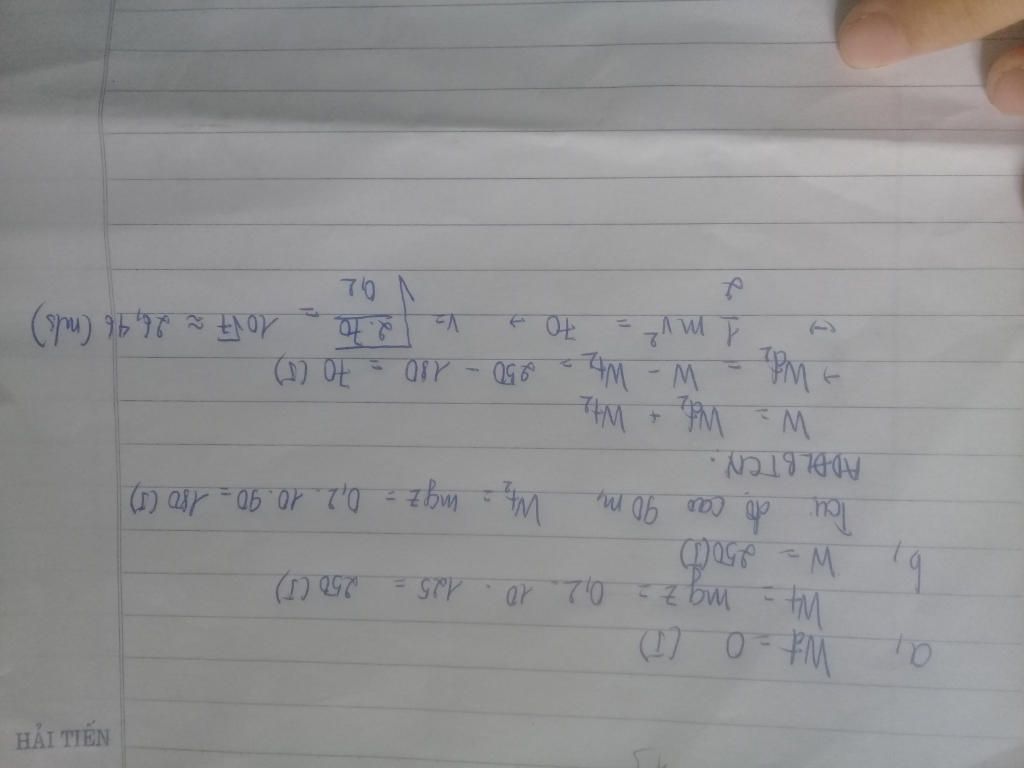 HẢI TIẾN
a, Wđ = 0 (J)
Wt = mgz = 0,2 . 10 . 125 = 250 (J)
b, W = 250 (J)
Tại độ cao 90 m, Wt₂ = mgz = 0,2 . 10 . 90 = 180 (J)
ADĐLBTCN:
W = Wđ₂ + Wt₂
→ Wđ₂ = W - Wt₂ = 250 - 180 = 70 (J)
↔ 1/2 mv² = 70 → v = √(2.70/0,2) = 10√7 ≈ 26,46 (m/s)